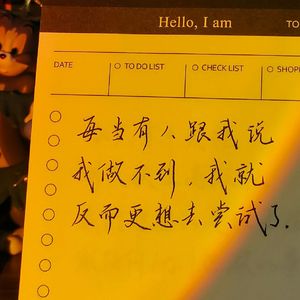 Hello, I am
TO
DATE
TO DO LIST
CHECK LIST
SHOP
每当有人跟我说
我做不到，我就
反而更想去尝试了.